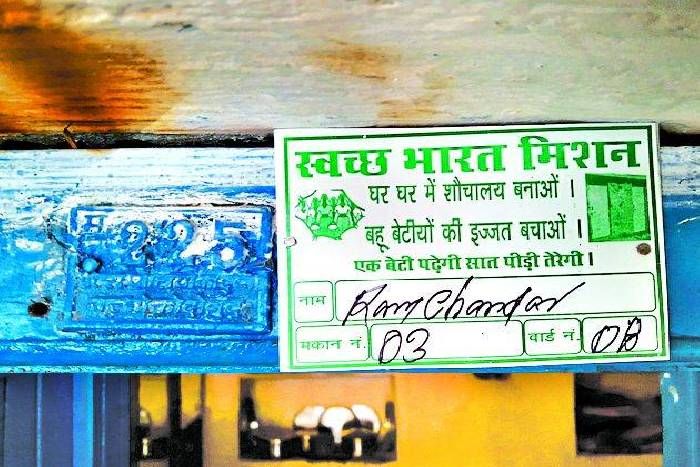 स्वच्छ भारत मिशन
घर घर में शौचालय बनाओं ।
बहू बेटीयों की इज्जत बचाओं ।
एक बेटी पढ़ेगी सात पीड़ी तेरेगी ।
नाम Ram Chandar
मकान नं. 03 वार्ड नं. 08
म 225